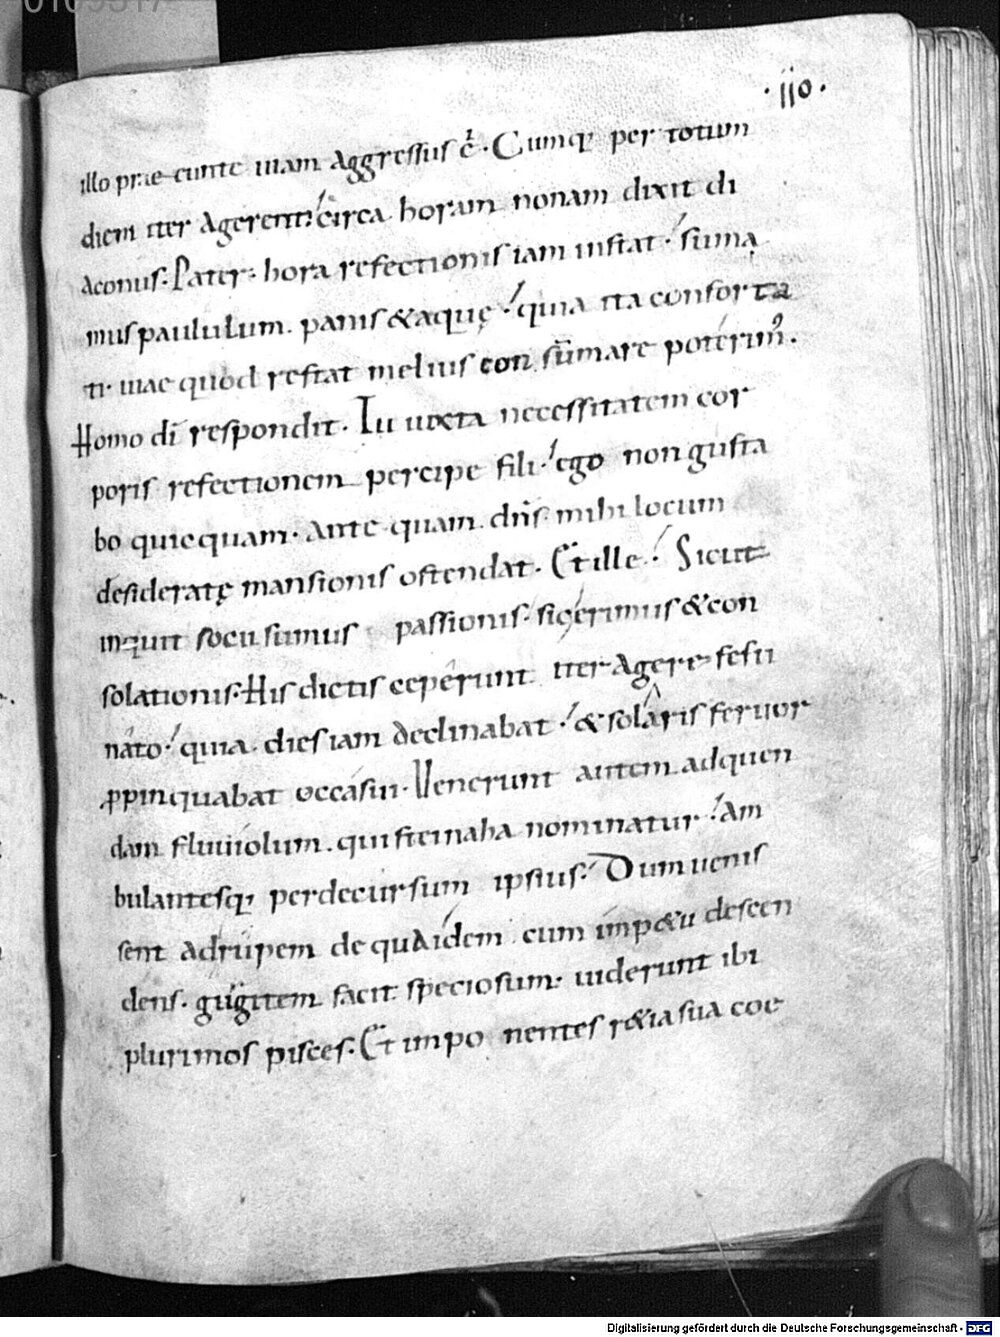 ·110·
illo prae eunte uiam aggressus ē· Cumq; per totum
diem iter agerent· circa horam nonam dixit di
aconus· Pater· hora refectionis iam instat· suma
mus paululum· panis & aquę· quia ita conforta
ti· uiae quod restat melius con sūmare poterim᾽·
Homo dī respondit· Tu iuxta necessitatem cor
poris refectionem percipe fili· ego non gusta
bo quicquam· Ante quam dn̄s mihi locum
desideratę mansionis ostendat· Et ille· Sicut
inquit socii sumus passionis· sic erimus & con
solationis· His dictis ceperunt iter agere festi
nato· quia dies iam declinabat· & solaris feruor
ꝓpinquabat occasui· Venerunt autem ad quen
dam fluuiolum· qui steinaha nominatur· Am
bulantesq; per decursum ipsius· Dum uenis
sent ad rupem de qua idem cum imp&u descen
dens· gurgitem facit speciosum· uiderunt ibi
plurimos pisces· Et impo nentes r&ia sua coe
Digitalisierung gefördert durch die Deutsche Forschungsgemeinschaft - DFG